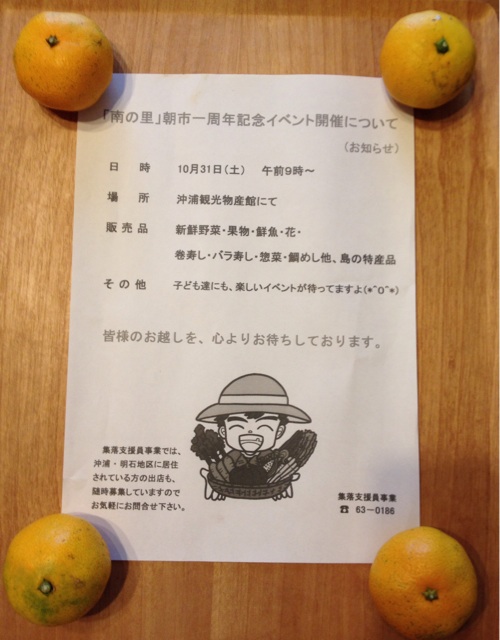 「南の里」朝市一周年記念イベント開催について
(お知らせ)
日　時　10月31日(土)　午前9時～
場　所　沖浦観光物産館にて
販売品　新鮮野菜・果物・鮮魚・花・
巻寿し・バラ寿し・惣菜・鯛めし他、島の特産品
その他　子ども達にも、楽しいイベントが待ってますよ(*^O^*)
皆様のお越しを、心よりお待ちしております。
集落支援員事業では、
沖浦・明石地区に居住
されている方の出店も、
随時募集していますので
お気軽にお問合せ下さい。
集落支援員事業
☎ 63－0186